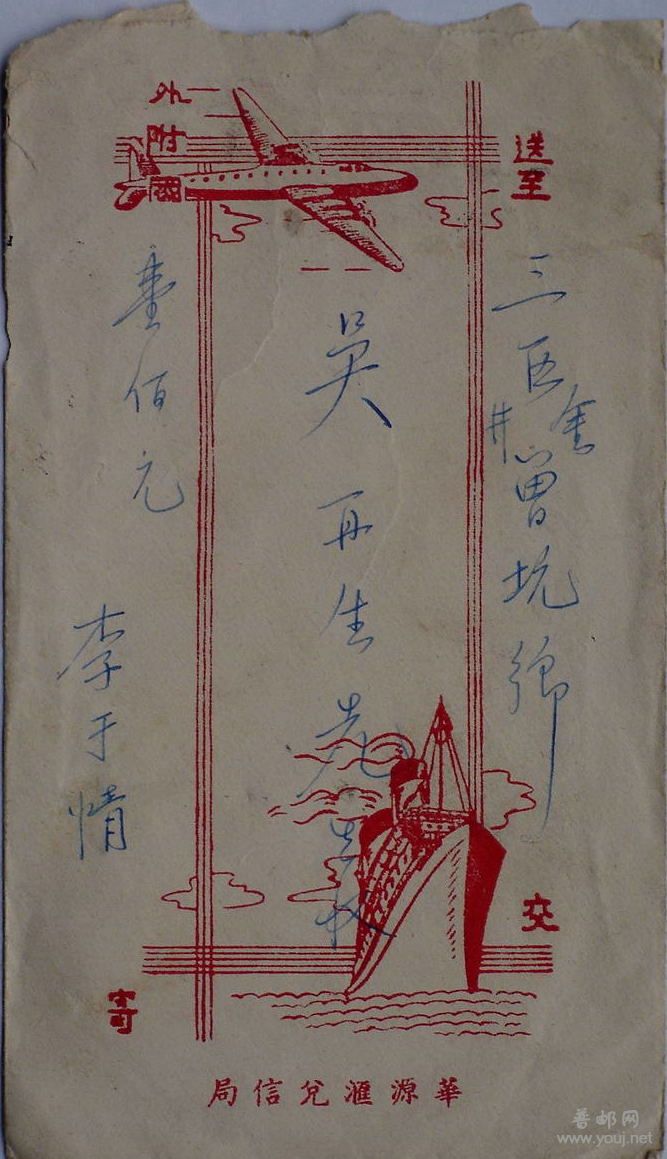 送至
三区金井曾坑鄉
交
吳再生先生收
外附
壹佰元
李于情
寄
華源滙兌信局
普邮网
www.youj.net